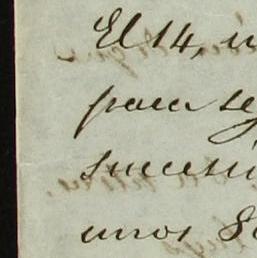 El 14, u
para se
sucesi
unos 8